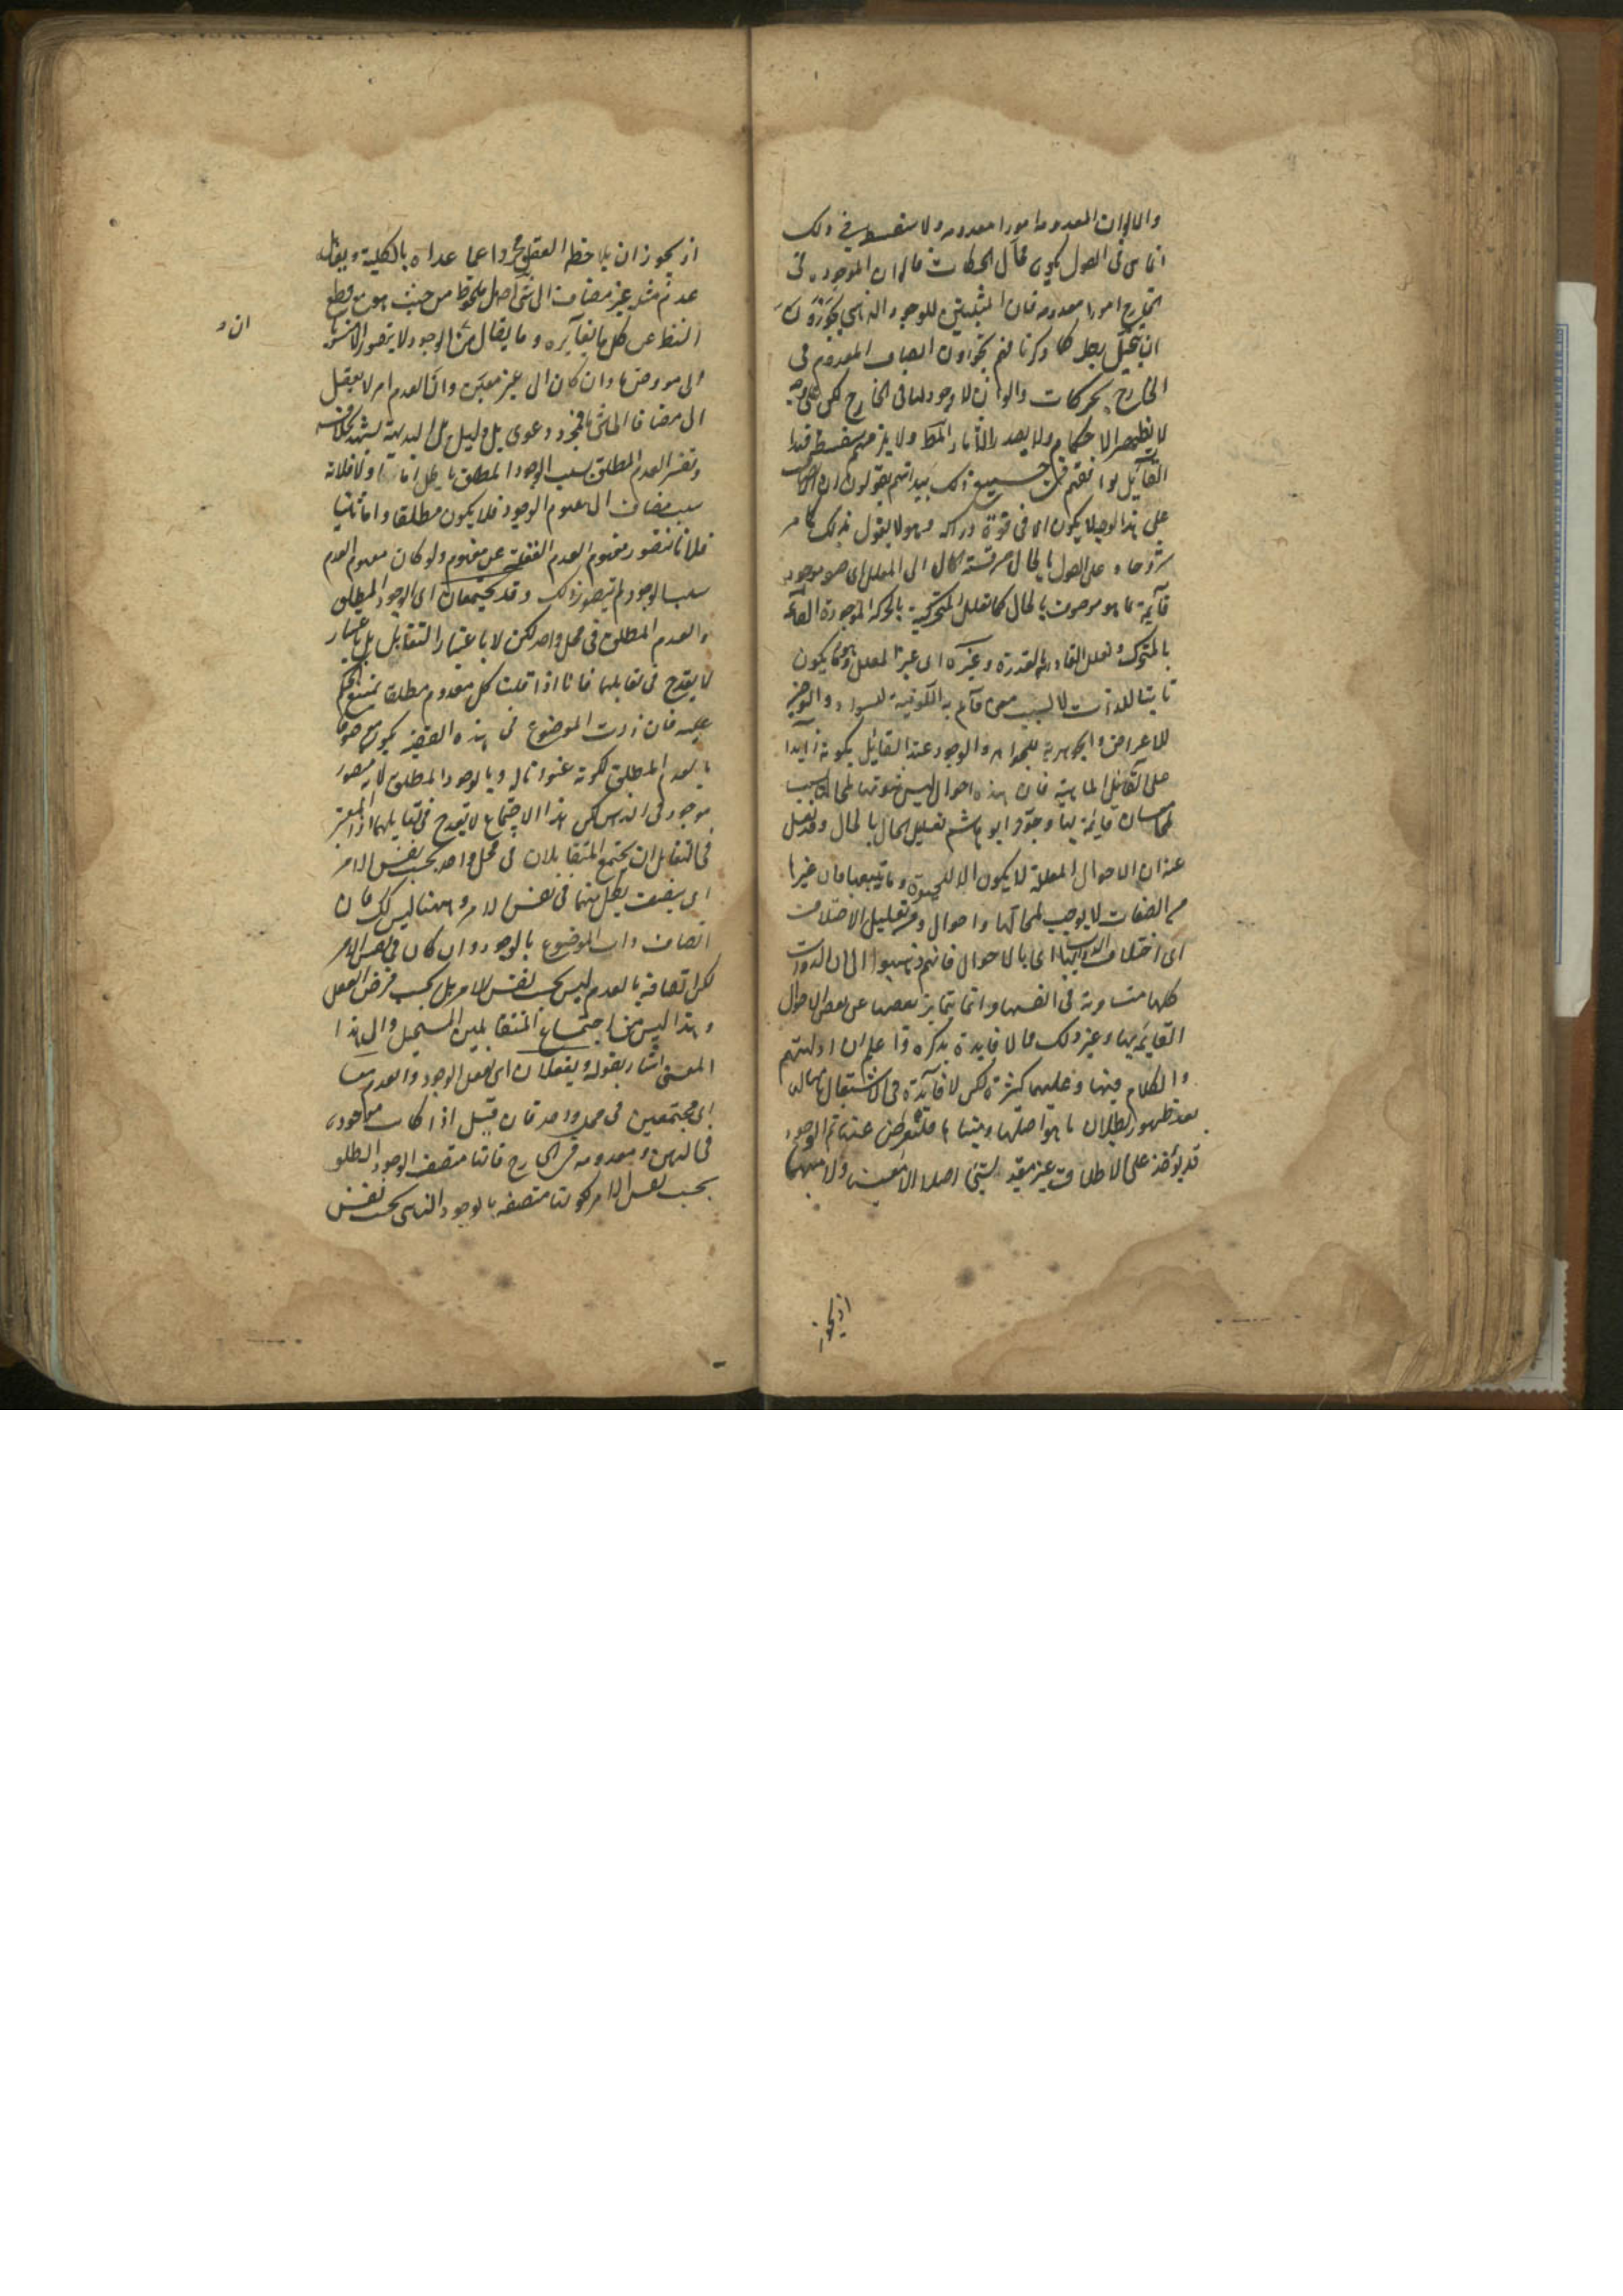 والالوان المعدومة امورا معدومة ولا سفسطة في ذلك
انما هي في القول بكون محال الحركات والالوان الموجودة في
الخارج امورا معدومة فان المثبتين للوجود الذهني يجوزون
ان يتخيل بطل كما ذكرنا فهم يجوزون اتصاف المعدوم في
الخارج بحركات والوان لا وجود لها في الخارج لكن على وجه
لا يظهر الاحكام ولا يصدر الآثار ولا يلزمهم سفسطة فهذا
القائل يوافقهم في جميع ذلك بيد انهم يقولون ان الاتصاف
على هذا الوجه لا يكون الا في قوة دراكة وهو لا يقول بذلك كما مر
وفرعاه على القول بالحال من قسمة الحال الى المعلل اى بصفة موجودة
قائمة بما هو موصوف بالحال كما تعلل المتحركية بالحركة الموجودة القائمة
بالمتحرك وتعلل القادرية بالقدرة وغيره اى غير المعلل وهو ما يكون
ثابتا للذات لا بسبب معنى قائم به كاللونية للسواد والعرضية
للاعراض والجوهرية للجواهر والوجود عند القائل بكونه زايدا
على الماهية فان هذه احوال ليس ثبوتها لمحالها بسبب
معان قائمة بها وجوز ابو هاشم تعليل الحال بالحال وقد نقل
عنه ان الاحوال المعللة لا يكون الا للحيوة وما يتبعها فان غيرها
من الصفات لا يوجب لمحالها احوال ومن تعليل الاختلاف
اى اختلاف الذوات بها اى بالاحوال فانهم ذهبوا الى ان الذوات
كلها متساوية في انفسها وانما يتمايز بعضها عن بعض بالاحوال
القايمة بها وغير ذلك مما لا فايدة بذكره واعلم ان ادلتهم
والكلام فيها وعليها كثيرة لكن لا فائدة في الاشتغال بامثالها
بعد ظهور بطلان ما هو اصلها ومبناها فلنعرض عنها ثم الوجود
قد يؤخذ على الاطلاق غير مقيد بشئ اصلا لا معين ولا مبهم
اذ يجوز
اذ يجوز ان يلاحظ العقل مجردا عما عداه بالكلية ويقابله
عدم مثله غير مضاف الى شئ اصل ملحوظ من حيث هو مع قطع
النظر عن كل ما يغايره وما يقال من ان الوجود لا يتصور الا منسوبا
الى معروض ما وان كان الى غير معين وان العدم امر لا يعقل
الا مضافا الى شئ ما فمجرد دعوى بلا دليل بل البديهة يشهد بخلافه
وتفسير العدم المطلق بسلب الوجود المطلق باطل اما اولا فلانه
سلب مضاف الى مفهوم الوجود فلا يكون مطلقا واما ثانيا
فلانا نتصور مفهوم العدم مع الغفلة عن مفهومه ولو كان مفهوم العدم
سلب الوجود لم يتصور ذلك وقد يجتمعان اى الوجود المطلق
والعدم المطلق في محل واحد لكن لا باعتبار التقابل بل باعتبار
لا يقدح في تقابلهما فانا اذا قلت كل معدوم مطلقا يمتنع الحكم
عليه فان ذات الموضوع في هذه القضية يكون موصوفا
بالعدم المطلق لكونه عنوانا له وبالوجود المطلق لانه متصور
موجود في الذهن لكن هذا الاجتماع لا يقدح في تقابلهما اذ المعتبر
في التقابل ان لا يجتمع المتقابلان في محل واحد بحسب نفس الامر
اى يتصف بكل منهما في نفس الامر وههنا ليس كذلك فان
اتصاف ذات الموضوع بالوجود وان كان في نفس الامر
لكن اتصافه بالعدم ليس بحسب نفس الامر بل بحسب فرض العقل
وهذا ليس من اجتماع المتقابلين المستحيل والى هذا
المعنى اشار بقوله ويعقلان اى يعقل الوجود والعدم معا
اى مجتمعين في محل واحد فان قيل اذا كانت موجودة
في الذهن ومعدومة في الخارج فانها متصفة بالوجود المطلق
بحسب نفس الامر لكونها متصفة بالوجود الذهني بحسب نفس